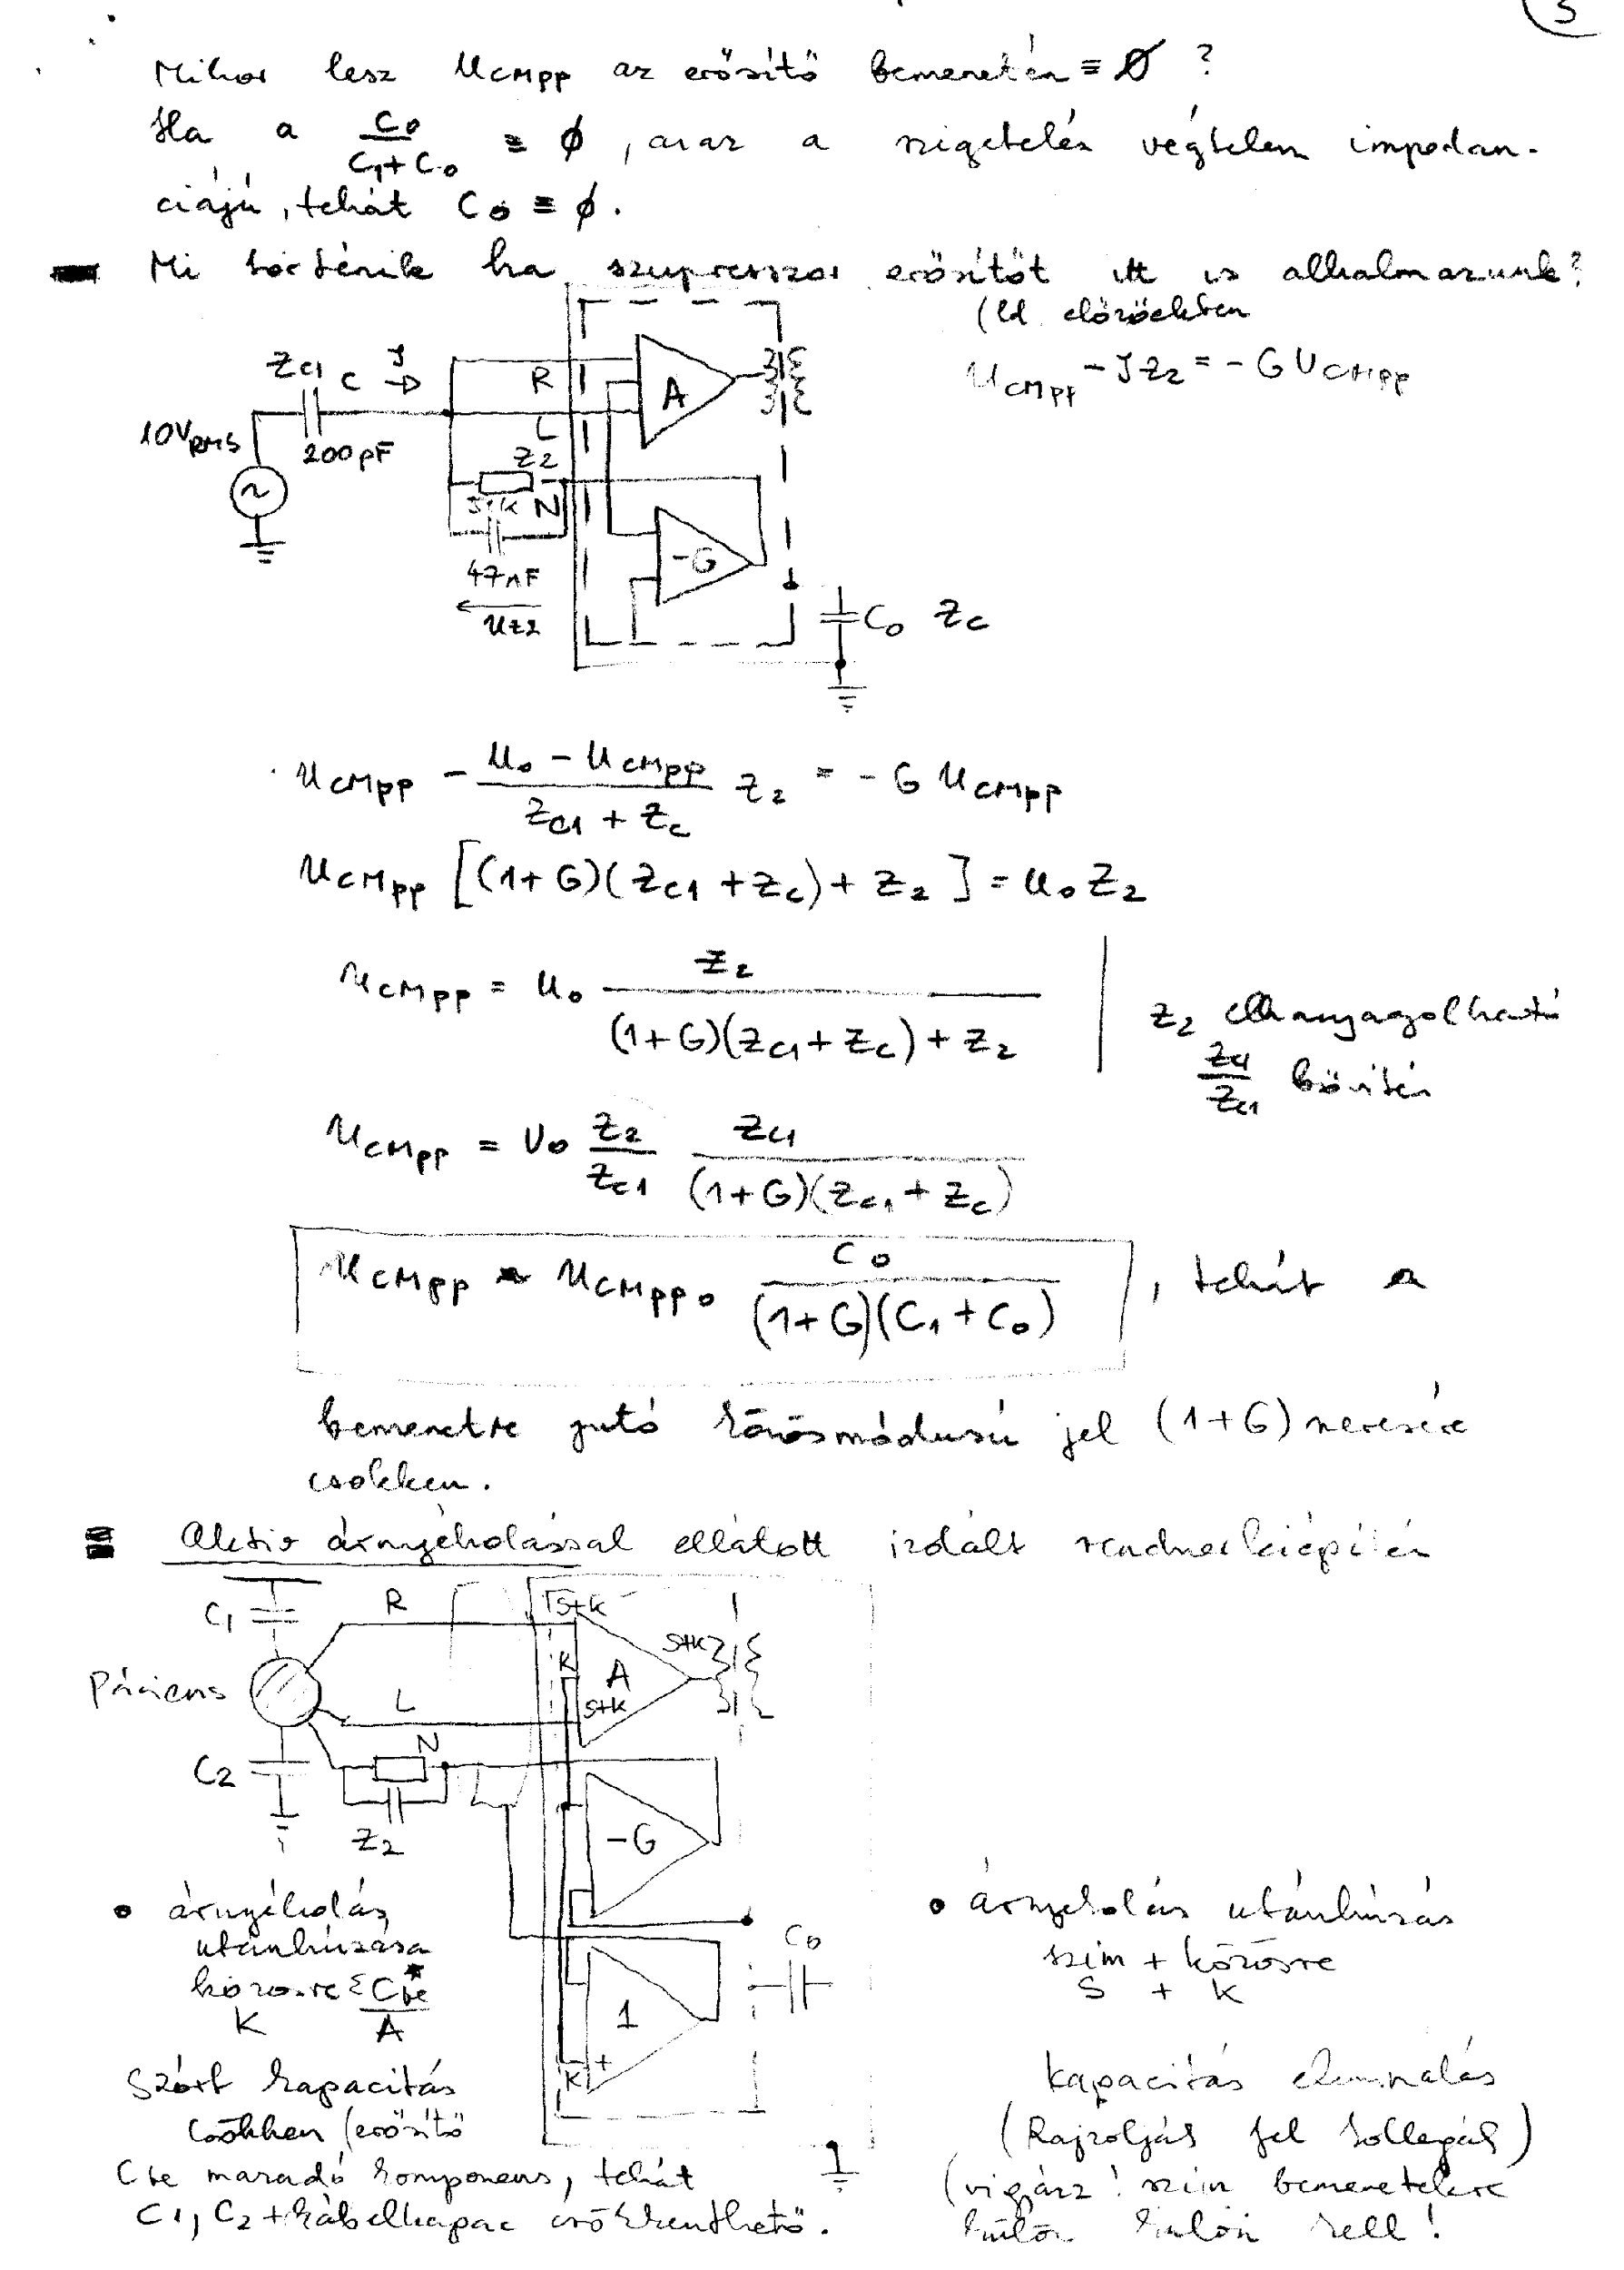 3
Mikor lesz UCMPP az erősítő bemenetén ≡ Ø ?
Ha a C0/(C1+C0) ≡ ϕ, azaz a szigetelés végtelen impedan-
ciájú, tehát C0 ≡ ϕ.
Mi történik ha szupresszor erősítőt itt is alkalmazunk?
(ld. előzőekben
UCMPP - JZ2 = -G UCMPP
ZC1 C J
R
A
L
10VRMS
200pF
Z2
51k N
-G
47nF
UZ2
C0 ZC
UCMPP - (U0 - UCMPP)/(ZC1 + ZC) Z2 = -G UCMPP
UCMPP [(1+G)(ZC1 + ZC) + Z2] = U0 Z2
UCMPP = U0 Z2/((1+G)(ZC1 + ZC) + Z2)
Z2 elhanyagolható
ZC1/ZC1 bővítés
UCMPP = U0 Z2/ZC1 ZC1/((1+G)(ZC1 + ZC))
UCMPP = UCMPP0 C0/((1+G)(C1 + C0)) , tehát a
bemenetre jutó közösmódusú jel (1+G) szeresére
csökken.
Aktiv árnyékolással ellátott izolált rendszerkiépítés
C1 R S+K
K A S+K
S+K
Páciens
L
N
C2
Z2
-G
C0
1
K +
• árnyékolás
utánhúzása
közösre
K A
Szórt kapacitás
csökken (erősítő
Cbe maradó komponens, tehát
C1, C2 + kábelkapac csökkenthető.
• árnyékolás utánhúzás
szim + közösre
S + K
kapacitás eliminálás
(Rajzolják fel kollegák)
(vigyázz! szim bemenetekre
külön külön kell!